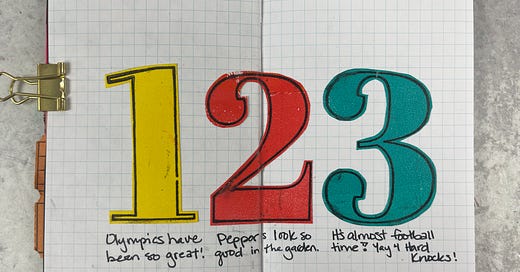 1 2 3
Olympics have
been so great!
Peppers look so
good in the garden.
It's almost football
time!! Yay 4 Hard
Knocks!